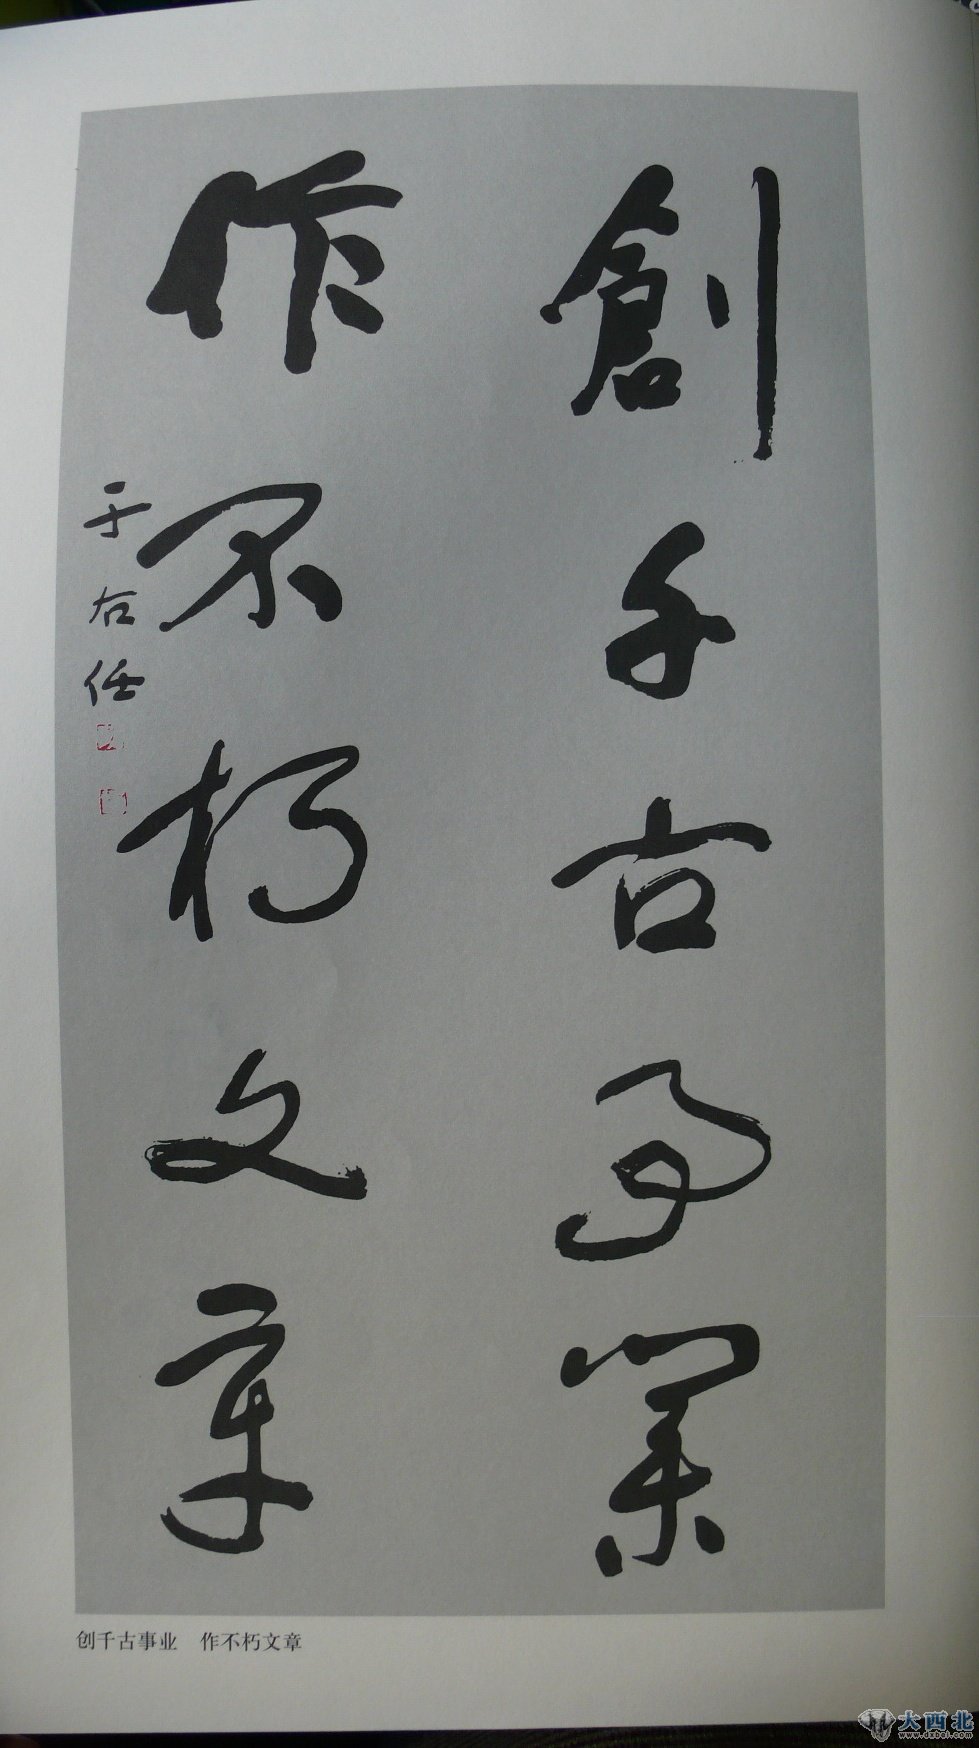 創千古事業
作不朽文章
于右任
创千古事业　作不朽文章
大西北
www.dxbei.com